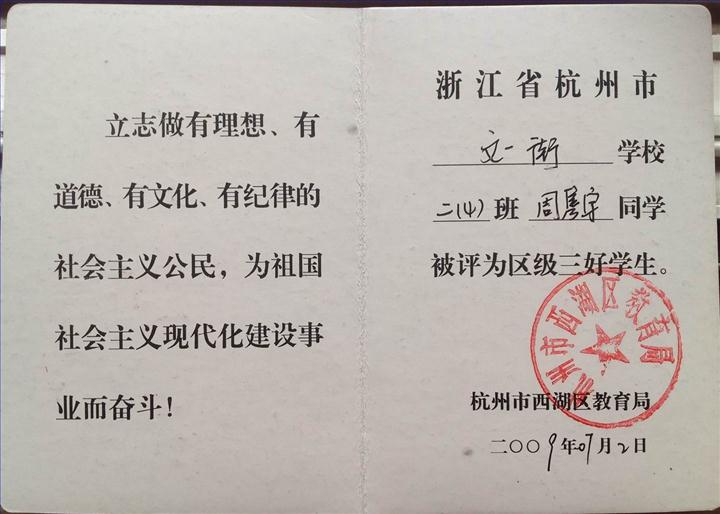 立志做有理想、有
道德、有文化、有纪律的
社会主义公民，为祖国
社会主义现代化建设事
业而奋斗！
浙江省杭州市
文一街学校
二(4)班周
同学
被评为区级三好学生。
杭州市西湖区教育局
杭州市西湖区教育局
二〇〇9年07月2日